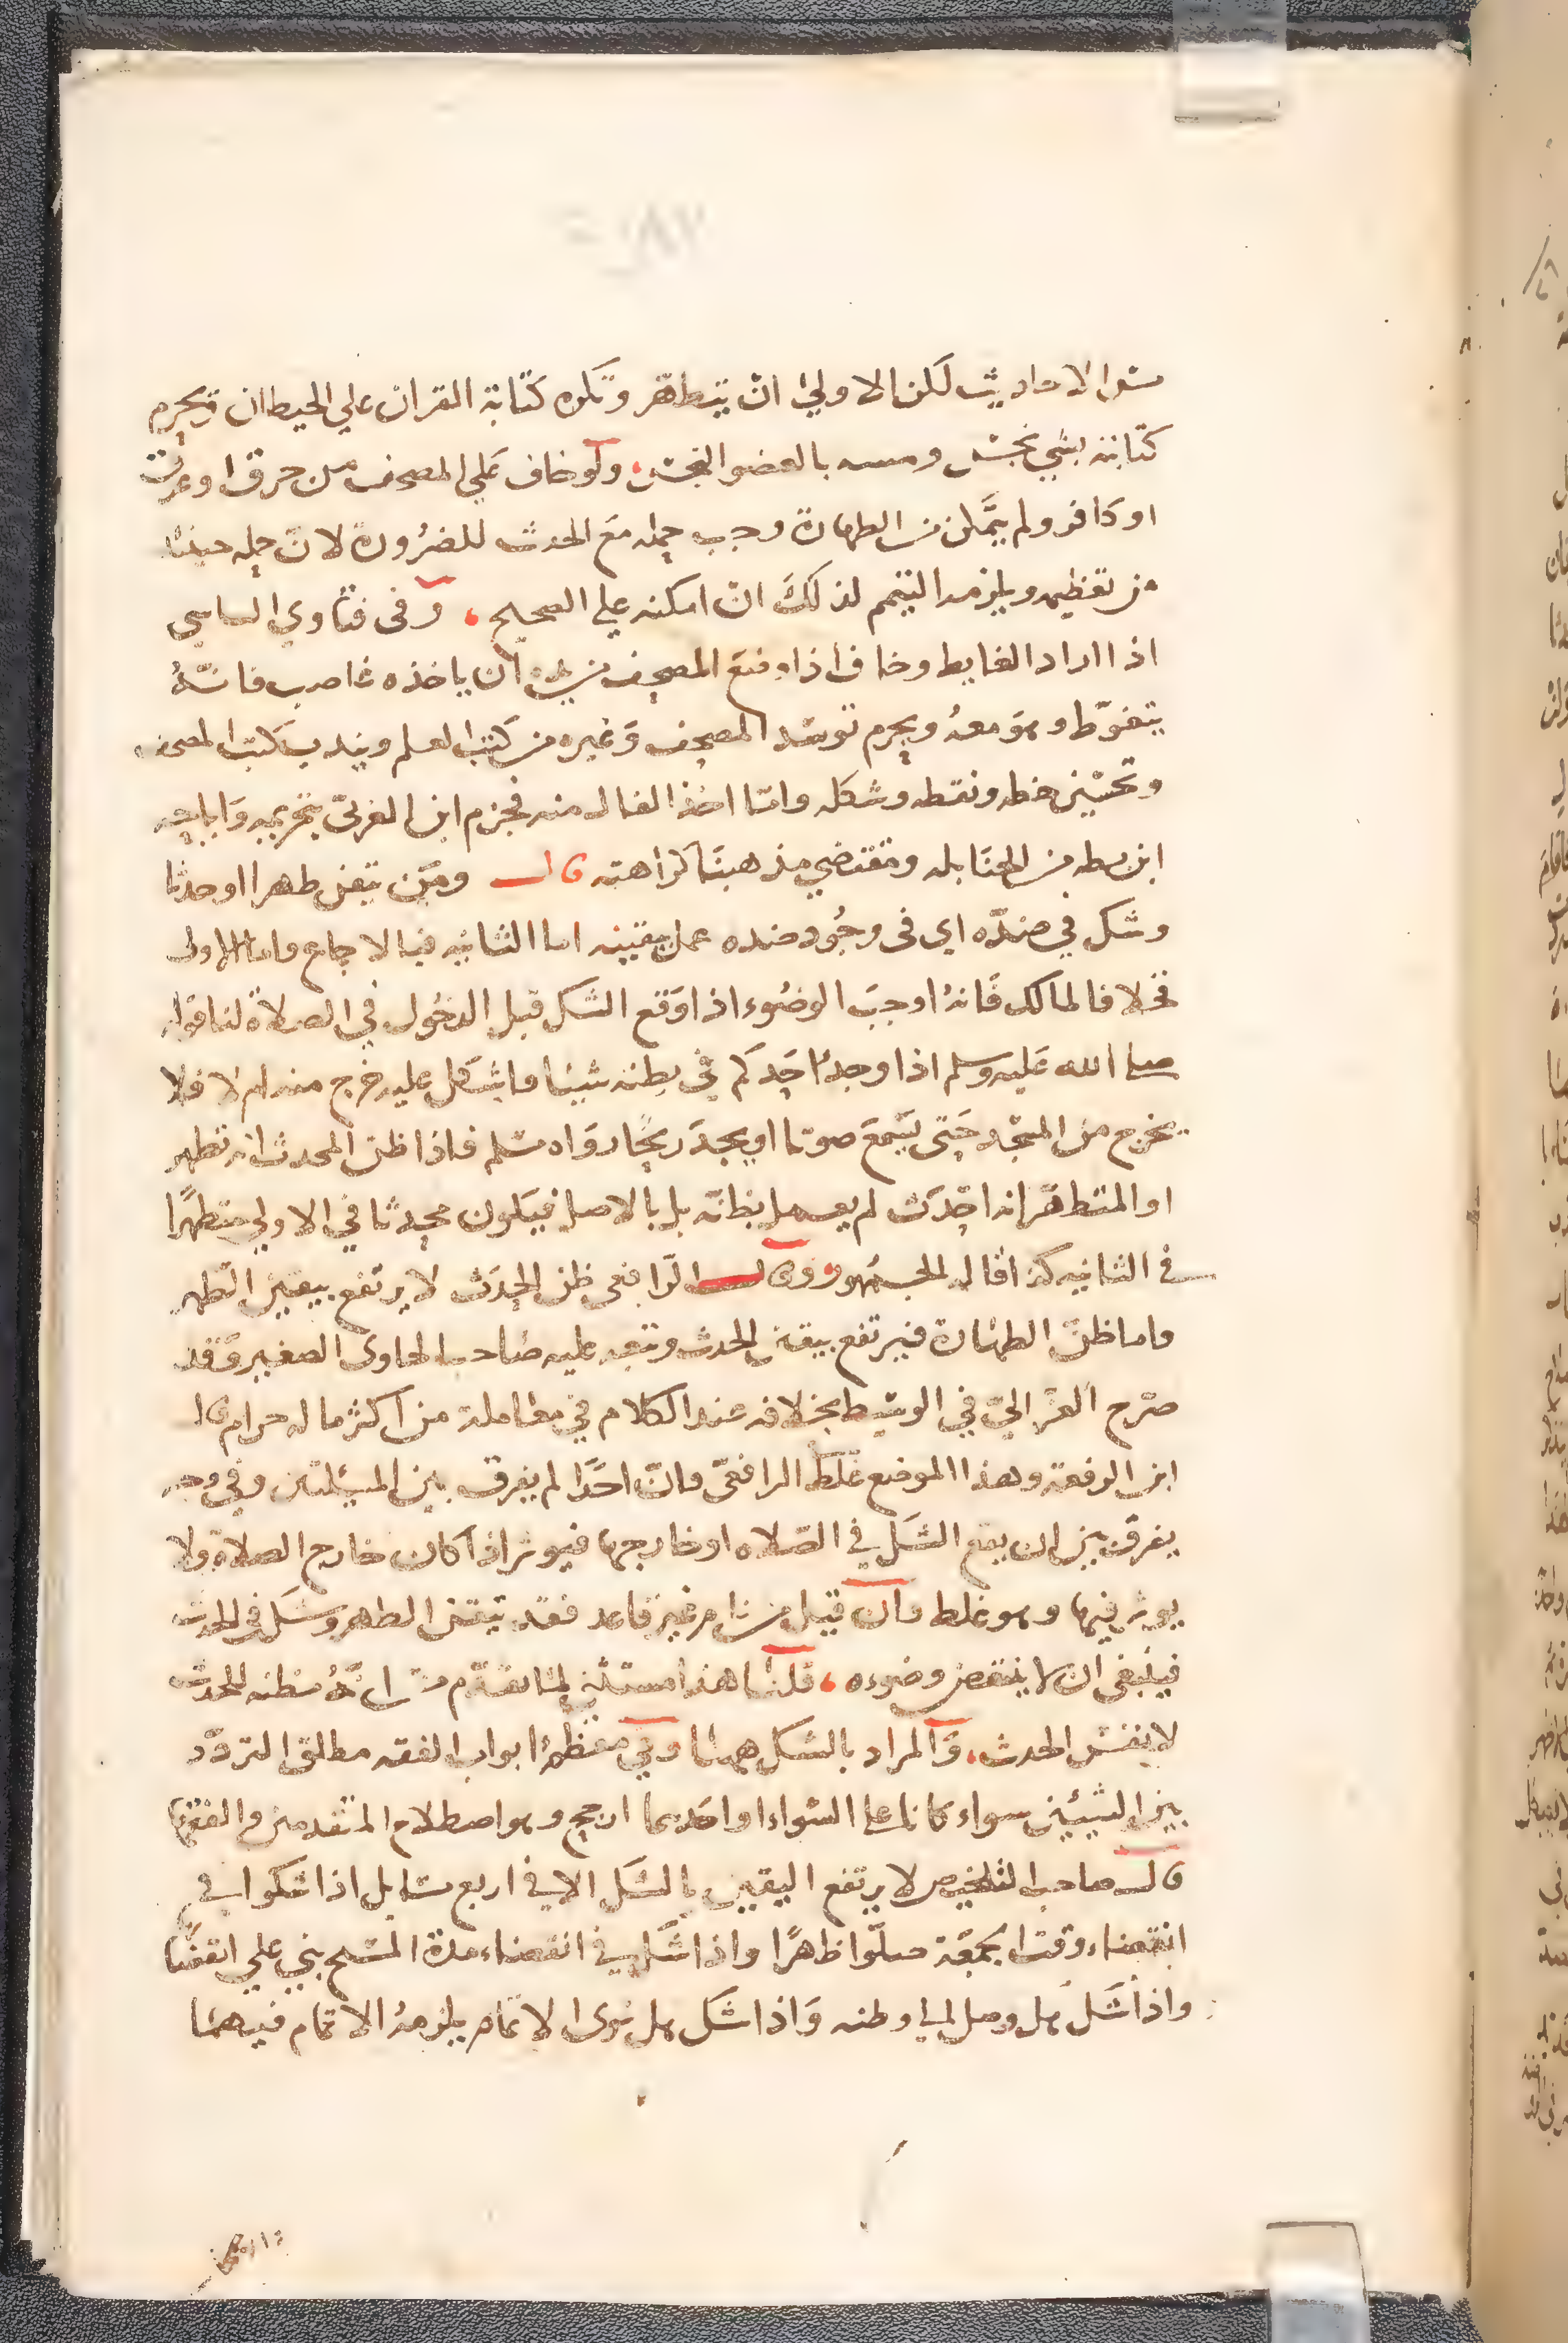 الاحاديث لكن الاولى ان يتطهر وتكره كتابة القران علي الحيطان ويحرم
كتابته بشي نجس ومسه بالعضو النجس، ولو خاف علي المصحف من حرق او غرق
او كافر ولم يتمكن من الطهارة وجب حمله مع الحدث للضرورة لان حمله حينئذ
من تعظيمه ويلزمه التيمم لذلك ان امكنه علي الصحيح، وفي فتاوي
اذا اراد الغايط وخاف اذا وضع المصحف من يده ان ياخذه غاصب فانه
يتغوط وهو معه ويحرم توسد المصحف وغيره من كتب العلم ويندب كتب المصحف
وتحسين خطه ونقطه وشكله واما اخذ الفال منه فجزم ابن العربي بتحريمه واباحه
ابن بطه من الحنابله ومقتضي مذهبنا كراهته قال ومن تيقن طهرا او حدثا
وشك في ضده اي في وجود ضده عمل بيقينه اما الثانيه فبالاجماع واما الاولى
فخلافا لمالك فانه اوجب الوضوء اذا وقع الشك قبل الدخول في الصلاة لنا قوله
صلى الله عليه وسلم اذا وجد احدكم في بطنه شيئا فاشكل عليه خرج منه ام لا فلا
يخرج من المسجد حتى يسمع صوتا او يجد ريحا رواه مسلم فاذا ظن المحدث انه تطهر
او المتطهر انه احدث لم يعمل بظنه بل بالاصل فيكون محدثا في الاولي متطهرا
في الثانيه كذا قاله الجمهور وقال الرافعي ظن الحدث لا يرتفع بيقين الطهر
واما ظن الطهارة فيرتفع بيقين الحدث وتبعه عليه صاحب الحاوى الصغير وقد
صرح الغزالي في الوسيط بخلافه عند الكلام في معاملة من اكثر ماله حرام قال
ابن الرفعة وهذا الموضع غلط الرافعي فان احدا لم يفرق بين المسئلتين وفي وجه
يفرق بين ان يقع الشك في الصلاه او خارجها فيوثر اذا كان خارج الصلاة ولا
يوثر فيها وهو غلط فان قيل من نام غير قاعد فقد تيقن الطهر وشك في الحدث
فينبغى ان لا ينتقض وضوءه، قلنا هذا مستثنى لما تقدم من انه مظنه للحدث
لا نفس الحدث، والمراد بالشك ههنا وفي معظم ابواب الفقه مطلق التردد
بين الشيئين سواء كانا على السواء او احدهما ارجح وهو اصطلاح المتقدمين والفقها
قال صاحب التلخيص لا يرتفع اليقين بالشك الا في اربع مسايل اذا شكوا في
انقضاء وقت الجمعة صلوا ظهرا واذا شك في انقضاء مدة المسح بني علي انقضا
واذا شك هل وصل الي وطنه واذا شك هل نوى الاتمام يلزمه الاتمام فيهما